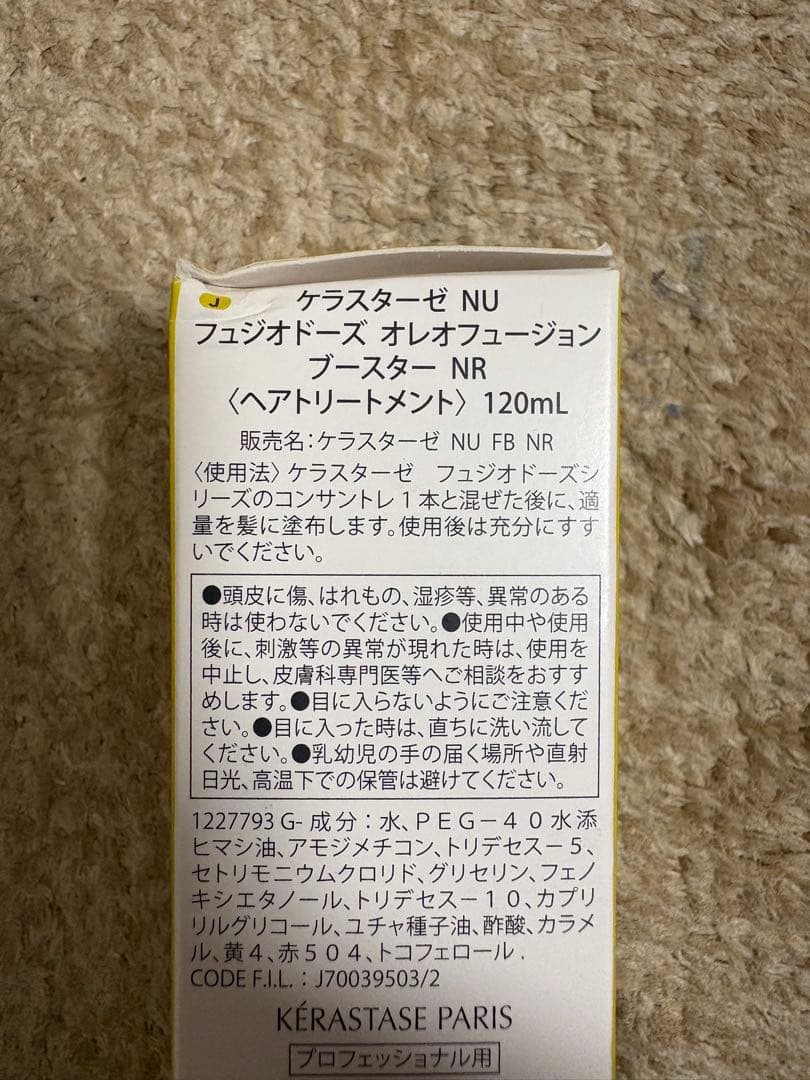 J
ケラスターゼ NU
フュジオドーズ オレオフュージョン
ブースター NR
〈ヘアトリートメント〉 120mL
販売名：ケラスターゼ NU FB NR
〈使用法〉ケラスターゼ　フュジオドーズシ
リーズのコンサントレ１本と混ぜた後に、適
量を髪に塗布します。使用後は充分にすす
いでください。
●頭皮に傷、はれもの、湿疹等、異常のある
時は使わないでください。●使用中や使用
後に、刺激等の異常が現れた時は、使用を
中止し、皮膚科専門医等へご相談をおすす
めします。●目に入らないようにご注意くだ
さい。●目に入った時は、直ちに洗い流して
ください。●乳幼児の手の届く場所や直射
日光、高温下での保管は避けてください。
1227793 G- 成分：水、ＰＥＧ－４０水添
ヒマシ油、アモジメチコン、トリデセス－５、
セトリモニウムクロリド、グリセリン、フェノ
キシエタノール、トリデセス－１０、カプリ
リルグリコール、ユチャ種子油、酢酸、カラメ
ル、黄４、赤５０４、トコフェロール .
CODE F.I.L.：J70039503/2
KÉRASTASE PARIS
プロフェッショナル用